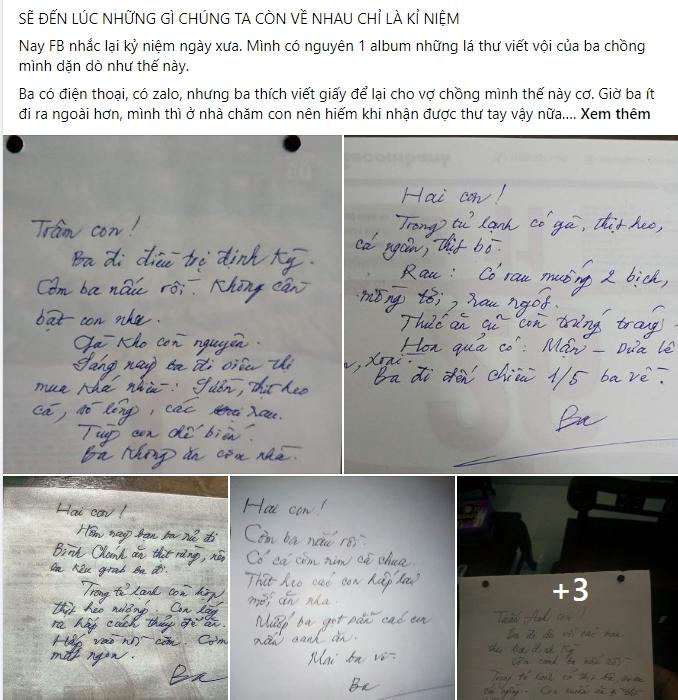 SẼ ĐẾN LÚC NHỮNG GÌ CHÚNG TA CÒN VỀ NHAU CHỈ LÀ KỈ NIỆM
Nay FB nhắc lại kỷ niệm ngày xưa. Mình có nguyên 1 album những lá thư viết vội của ba chồng
mình dặn dò như thế này.
Ba có điện thoại, có zalo, nhưng ba thích viết giấy để lại cho vợ chồng mình thế này cơ. Giờ ba ít
đi ra ngoài hơn, mình thì ở nhà chăm con nên hiếm khi nhận được thư tay vậy nữa.... Xem thêm
Trâm con!
Ba đi điều trị định kỳ.
Cơm ba nấu rồi. Không cần
bật con nha.
Gà kho còn nguyên.
Sáng nay ba đi siêu thị
mua khá nhiều: Sườn, thịt heo
cá, bò, các rau.
Tùy con chế biến.
Ba không ăn cơm nhà.
Hai con!
Trong tủ lạnh có gà, thịt heo,
cá ngân, thịt bò.
Rau: Có rau muống 2 bịch,
mồng tơi, rau ngót.
Thức ăn cũ còn trứng tráng
Hoa quả có: Mận - Dưa lê
, xoài.
Ba đi đến chiều 1/5 ba về.
Ba
Hai con!
Hôm nay bạn ba rủ đi
Bình Chánh ăn thịt rừng, nên
ba kêu grab ba đi.
Trong tủ lạnh còn hộp
thịt heo nướng. Con lấy
ra hấp cách thủy để ăn.
Hấp vào nồi cơm. Cơm
mới ngon.
Ba
Hai con!
Cơm ba nấu rồi.
Có cá cơm rim cà chua.
Thịt heo các con hấp lại
mới ăn nha.
Mướp ba gọt sẵn các con
nấu canh ăn.
Mai ba về.
Ba
+3
Tuấn Anh con!
Ba đi
Cơm canh ba nấu rồi.
Trong tủ lạnh có thịt bò,